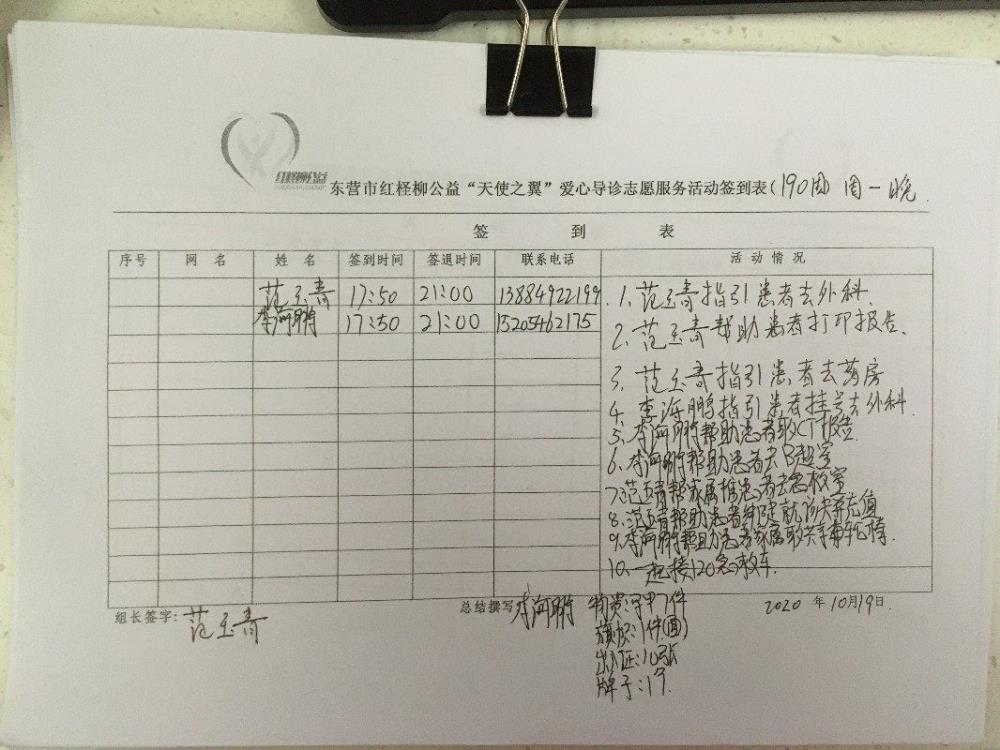 红柽柳公益
东营市红柽柳公益“天使之翼”爱心导诊志愿服务活动签到表(190周) 周一晚
签 到 表
序号 网 名 姓 名 签到时间 签退时间 联系电话 活动情况
范玉青 17:50 21:00 13884922199
李海鹏 17:50 21:00 15205462175
1. 范玉青指引患者去外科.
2. 范玉青帮助患者打印报告.
3. 范玉青指引患者去药房
4. 李海鹏指引患者挂号去外科.
5. 李海鹏帮助患者取CT报告
6. 李海鹏帮助患者去B超室
7. 范玉青帮家属推患者去急救室
8. 范玉青帮助患者绑定就诊卡并充值
9. 李海鹏帮助患者家属取
10. 一起接120急救车.
组长签字: 范玉青
总结撰写 李海鹏
2020 年 10月19日.
物资:马甲7件
旗帜:1件(面)
出入证:10张
牌子:1个